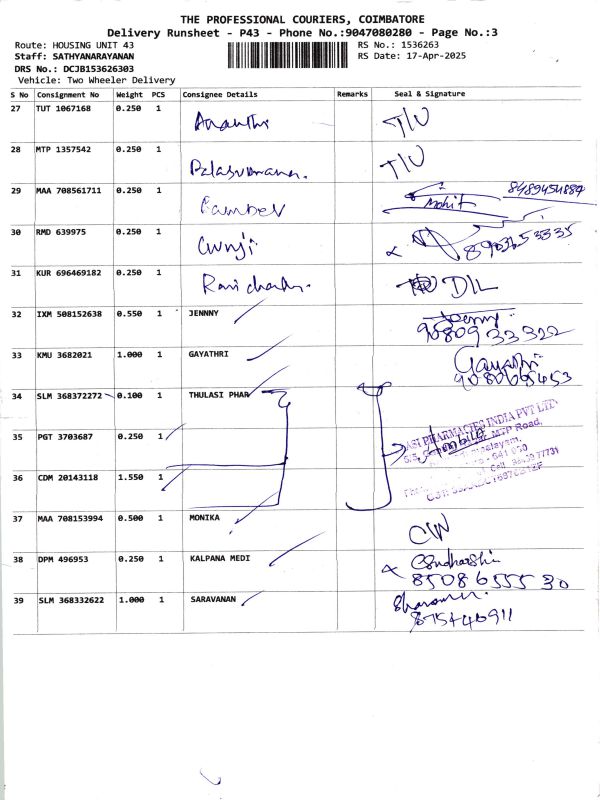 THE PROFESSIONAL COURIERS, COIMBATORE
Delivery Runsheet - P43 - Phone No.:9047080280 - Page No.:3
Route: HOUSING UNIT 43 RS No.: 1536263
Staff: SATHYANARAYANAN RS Date: 17-Apr-2025
DRS No.: DCJB153626303
Vehicle: Two Wheeler Delivery
S No Consignment No Weight PCS Consignee Details Remarks Seal & Signature
27 TUT 1067168 0.250 1 Ananthi T/U
28 MTP 1357542 0.250 1 T/U
29 MAA 708561711 0.250 1 Mohit 8489454884
30 RMD 639975 0.250 1
31 KUR 696469182 0.250 1 D/L
32 IXM 508152638 0.550 1 JENNNY Jenny
9080933322
33 KMU 3682021 1.000 1 GAYATHRI Gayathri
34 SLM 368372272 0.100 1 THULASI PHAR
ASI PHARMACIES INDIA PVT LTD
MTP Road,
35 PGT 3703687 0.250 1
36 CDM 20143118 1.550 1
37 MAA 708153994 0.500 1 MONIKA
38 DPM 496953 0.250 1 KALPANA MEDI
8508655530
39 SLM 368332622 1.000 1 SARAVANAN